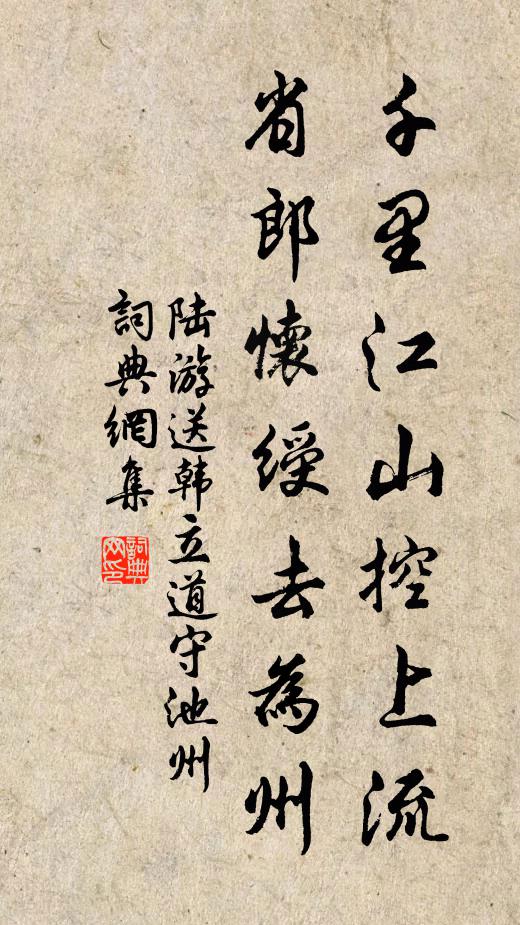 千里江山控上流
省郎懷綬去為州
陆游送韩立道守池州
詞典網集
詞典网印